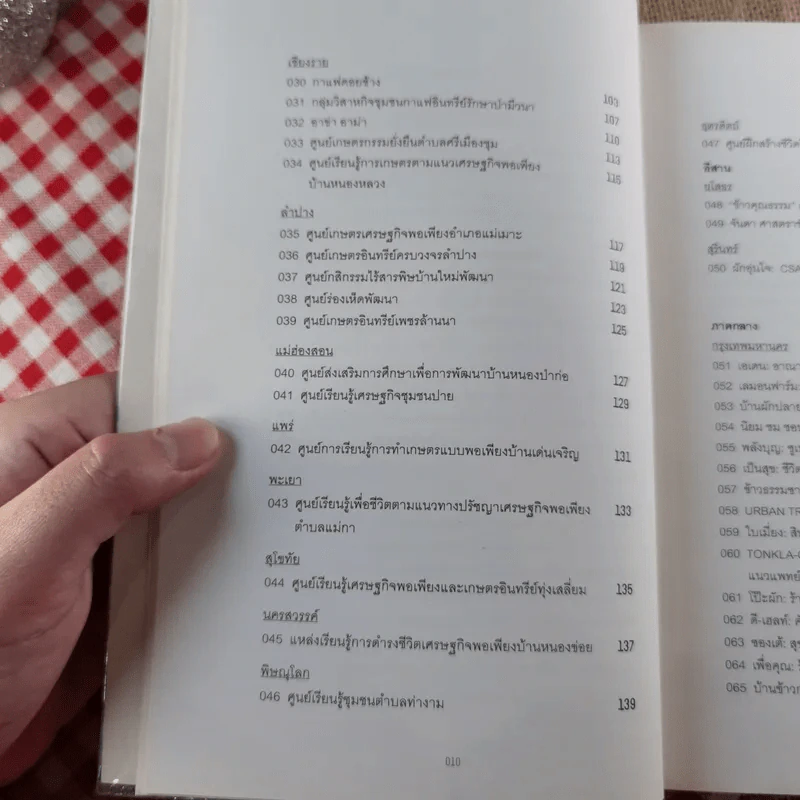 เชียงราย
030 กาแฟดอยช้าง 103
031 กลุ่มวิสาหกิจชุมชนกาแฟอินทรีย์รักษาป่ามีวนา 107
032 อาข่า อาม่า 110
033 ศูนย์เกษตรกรรมยั่งยืนตำบลศรีเมืองชุม 113
034 ศูนย์เรียนรู้การเกษตรตามแนวเศรษฐกิจพอเพียง 115
บ้านหนองหลวง
ลำปาง
035 ศูนย์เกษตรเศรษฐกิจพอเพียงอำเภอแม่เมาะ 117
036 ศูนย์เกษตรอินทรีย์ครบวงจรลำปาง 119
037 ศูนย์กสิกรรมไร้สารพิษบ้านใหม่พัฒนา 121
038 ศูนย์ร่องเห็ดพัฒนา 123
039 ศูนย์เกษตรอินทรีย์เพชรล้านนา 125
แม่ฮ่องสอน
040 ศูนย์ส่งเสริมการศึกษาเพื่อการพัฒนาบ้านหนองป่าก่อ 127
041 ศูนย์เรียนรู้เศรษฐกิจชุมชนปาย 129
แพร่
042 ศูนย์การเรียนรู้การทำเกษตรแบบพอเพียงบ้านเด่นเจริญ 131
พะเยา
043 ศูนย์เรียนรู้เพื่อชีวิตตามแนวทางปรัชญาเศรษฐกิจพอเพียง 133
ตำบลแม่กา
สุโขทัย
044 ศูนย์เรียนรู้เศรษฐกิจพอเพียงและเกษตรอินทรีย์ทุ่งเสลี่ยม 135
นครสวรรค์
045 แหล่งเรียนรู้การดำรงชีวิตเศรษฐกิจพอเพียงบ้านหนองช่อย 137
พิษณุโลก
046 ศูนย์เรียนรู้ชุมชนตำบลท่างาม 139
010
อุตรดิตถ์
047 ศูนย์ฝึกสร้างชีวิต
อีสาน
ยโสธร
048 "ข้าวคุณธรรม"
049 จันดา
สุรินทร์
050 ผักอุ่นใจ: CSA
ภาคกลาง
กรุงเทพมหานคร
051 เอเดน:
052 เลมอนฟาร์ม
053 บ้านผักปลาย
054 นิยม ชม ชอบ
055 พลังบุญ:
056 เป็นสุข:
057 ข้าวธรรมชา
058 URBAN TR
059 ใบเมี่ยง:
060 TONKLA-
แนวแพทย์
061 โป๊ะผัก: ร้า
062 ดี-เฮลท์:
063 ของเด้:
064 เพื่อคุณ:
065 บ้านข้าว